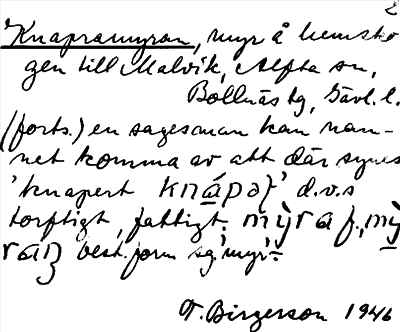 2
Knapramyran, myr å hemsko
gen till Malvik, Alfta sn,
Bollnäs tg, Gävl. l.
(forts.) en sagesman kan nam-
net komma av att där synes
'knapert knápǝt' d.v.s
torftigt, fattigt. mỳra f., mỳ
ran best. form sg. 'myr'.
T. Birgerson 1946